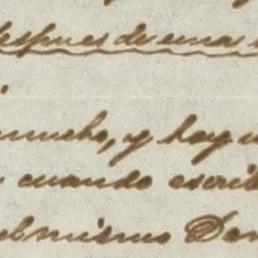 despues de una
mucho, y hay
cuando escrib
el mismo Don